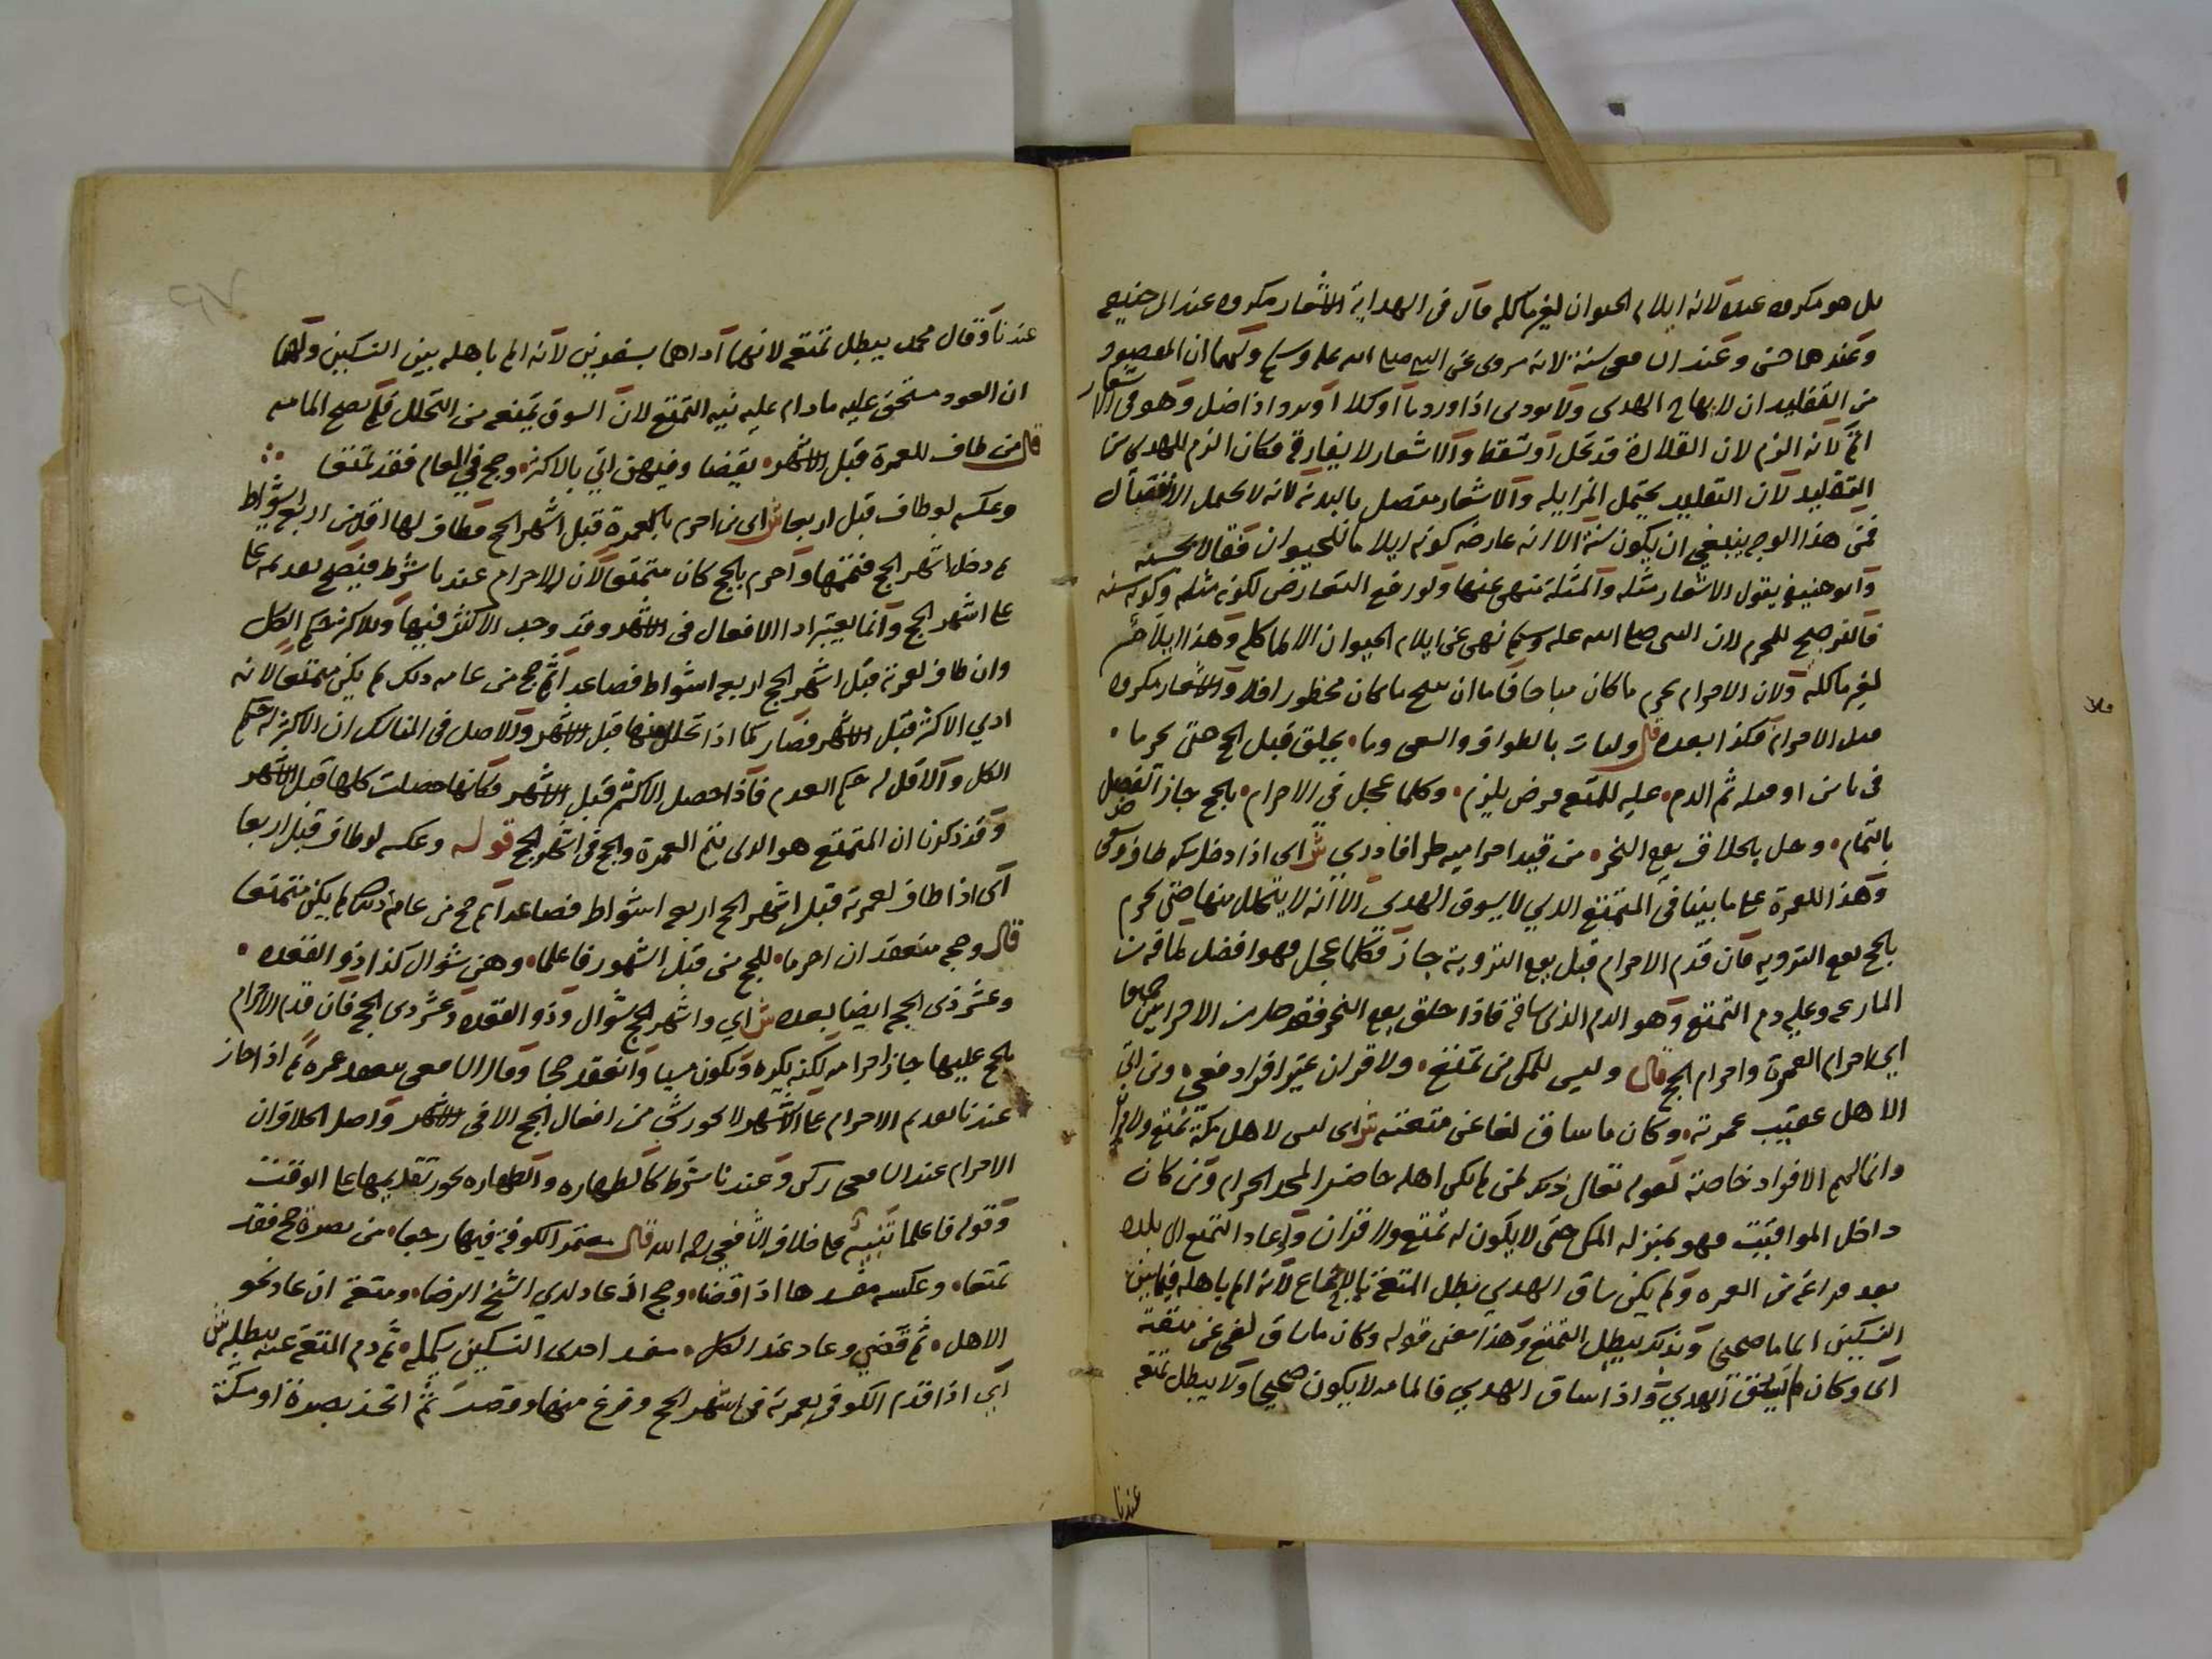 بل هو مكروه عنده لانه ايلام الحيوان لغير ماكله قال فى الهداية الاشعار مكروه عند ابى حنيفه
وعندهما حسن وعند الشافعى سنة لانه مروى عن النبى صلى الله عليه وسلم ولهما ان المقصود
من التقليد ان لا يهاج الهدى ولا يودى اذا ورد ماء او كلاء او يرد اذا ضل وهو فى الاشعار
اتم لانه الزم لان القلادة قد تحل او تسقط والاشعار لا يفارقه فكان الزم للهدى من
التقليد لان التقليد يحتمل المزايله والاشعار متصل بالبدنه لانه لا يحتمل الانفصال
فمن هذا الوجه ينبغي ان يكون سنة الا انه عارضه كونه ايلاما للحيوان فقالا بحسنه
وابو حنيفه يقول الاشعار مثله والمثلة منهى عنها ولو وقع التعارض لكونه مثله وكونه سنه
فالترجيح للمحرم لان النبى صلى الله عليه وسلم نهى عن ايلام الحيوان الا لماكله وهذا ايلام
لغير ماكله ولان الاحرام يحرم ما كان مباحا فاما ان يبيح ما كان محظورا فلا والاشعار مكروه
قبل الاحرام فكذا بعده قال وليات بالطواف والسعى وما · يحلق قبل الحج حتى يحرما ·
فى ثامن او قبله ثم الدم · عليه للمتعه فرض يلزم · وكلما عجل في الاحرام · بالحج جاز الفضل
بالتمام · وحل بالحلاق يوم النحر · من قيد احراميه طرا فادري ش اى اذا دخل مكه طاف وسعى
وهذا للعمرة على ما بينا فى المتمتع الذي لا يسوق الهدى الا انه لا يتحلل منها حتى يحرم
بالحج يوم الترويه فان قدم الاحرام قبل يوم التروية جاز فكلما عجل فهو افضل لما فيه من
المسارعه وعليه دم التمتع وهو الدم الذى ساقه فاذا حلق يوم النحر فقد حل من الاحرامين جميعا
اي احرام العمرة واحرام الحج قال وليس للمكى من تمتع · ولا قران غير افراد فعي · ومن اتى
الاهل عقيب عمرته · وكان ما ساق لغا عن متعته ش اى ليس لاهل مكة تمتع ولا قران
وانما لهم الافراد خاصة لقوله تعالى ذلك لمن لم يكن اهله حاضرى المسجد الحرام ومن كان
داخل المواقيت فهو بمنزله المكى حتى لا يكون له تمتع ولا قران واذا عاد المتمتع الى بلده
بعد فراغه من العمره ولم يكن ساق الهدي بطل المتعة بالاجماع لانه الم باهله فيما بين
النسكين الماما صحيحا وبذلك يبطل التمتع وهذا معنى قوله وكان ما ساق لغى عن متعته
اى وكان لم يسق الهدي واذا ساق الهدي فالمامه لا يكون صحيحا ولا يبطل تمتعه
عندنا
عندنا وقال محمد يبطل تمتعه لانهما اداهما بسفرين لانه الم باهله بين النسكين ولهما
ان العود مستحق عليه مادام على نيه التمتع لان السوق يمنعه من التحلل فلم يصح المامه
قال من طاف للعمرة قبل الاشهر · بعضا وفيهن اتي بالاكثر · وحج في العام فقد تمتعا ·
وعكسه لو طاف قبل اربعا ش اى من احرم بالعمرة قبل اشهر الحج فطاف لها اقل من اربع اشواط
ثم دخل اشهر الحج فتممها واحرم بالحج كان متمتعا لان الاحرام عندنا شرط فيصح تقديمه على
على اشهر الحج وانما يعتبر اداء الافعال فى الاشهر وقد وجد الاكثر فيها وللاكثر حكم الكل
وان طاف لعمرته قبل اشهر الحج اربعه اشواط فصاعدا ثم حج من عامه ذلك لم يكن متمتعا لانه
ادي الاكثر قبل الاشهر فصار كما اذا تحلل منها قبل الاشهر والاصل فى المناسك ان الاكثر له حكم
الكل والاقل له حكم العدم فاذا حصل الاكثر قبل الاشهر فكانها حصلت كلها قبل الاشهر
وقد ذكرنا ان المتمتع هو الذى يتم العمرة والحج فى اشهر الحج قوله وعكسه لو طاف قبل اربعا
اى اذا طاف لعمرته قبل اشهر الحج اربعه اشواط فصاعدا ثم حج من عامه ذلك لم يكن متمتعا
قال وحجه منعقد ان احرما · للحج من قبل الشهور فاعلما · وهي شوال كذا ذو القعده ·
وعشر ذى الحجه ايضا بعده ش اي واشهر الحج شوال وذو القعده وعشر ذى الحجه فان قدم الاحرام
بالحج عليها جاز احرامه لكنه يكره ويكون مسيا وانعقد حجا وقال الشافعى ينعقد عمرة ثم اذا جاز
عندنا تقديم الاحرام على الاشهر لا يجوز شي من افعال الحج الا فى الاشهر واصل الخلاف ان
الاحرام عند الشافعى ركن وعندنا شرط كالطهاره والطهاره يجوز تقديمها على الوقت
وقوله فاعلما تنبيه على خلاف الشافعي رحمه الله قال معتمر الكوفة فيها رجعا · من بصرة حج فقد
تمتعا · وعكسه مفسدها اذا قضا · وحج اذ عاد لدي الشيخ الرضا · ومتعة ان عاد نحو
الاهل · ثم قضي وعاد عند الكل · مفسد احدى النسكين يكمله · ثم دم المتعة عنه يبطله ش
اي اذا قدم الكوفى بعمرته فى اشهر الحج وفرغ منها وقصر ثم اتخذ بصرة او مكة